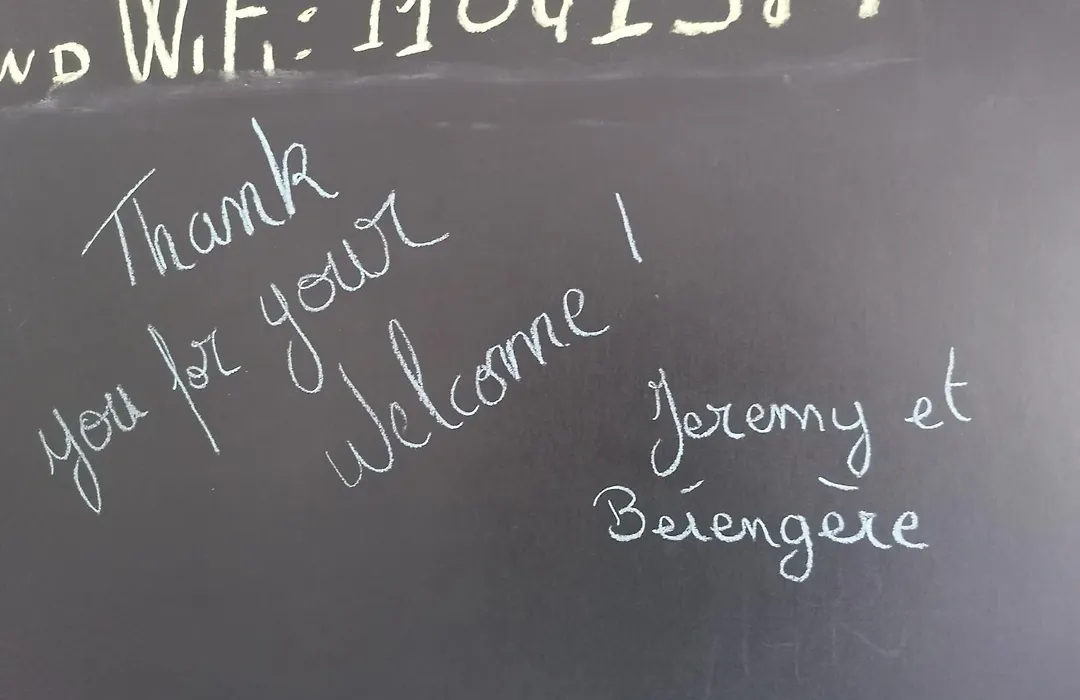 WiFi:
Thank
you for your
Welcome !
Jeremy et
Bérengère